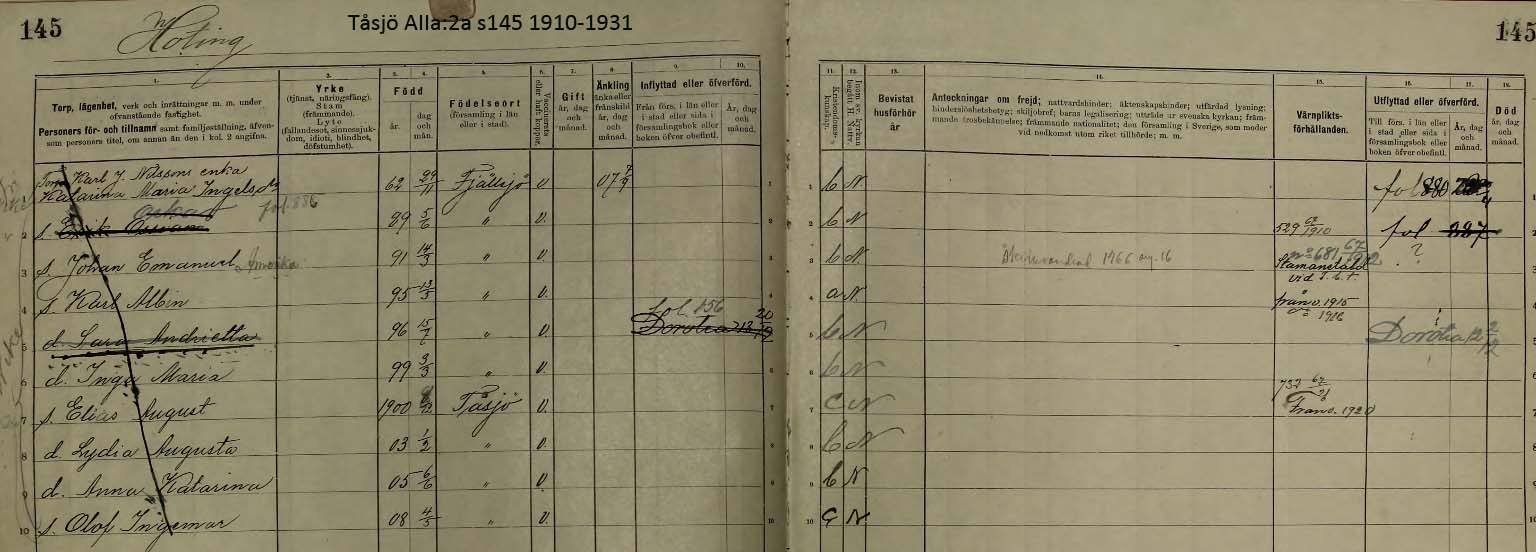 145
Höting
Tåsjö Alla:2a s145 1910-1931
145
1. 2. 3. 4. 5. 6. 7. 8. 9. 10.
Torp, lägenhet, verk och inrättningar m. m. under
ofvanstående fastighet.
Personers för- och tillnamn samt familjeställning, äfven-
som personers titel, om annan än den i kol. 2 angifna.
Yrke
(tjänst, näringsfång).
Stam
(främmande).
Lyte
(fallandesot, sinnessjuk-
dom, idioti, blindhet,
döfstumhet).
Född
år.
dag
och
mån.
Födelseort
(församling i län
eller i stad).
Vaccinerats
eller haft koppor.
Gift
år, dag
och
månad.
Änkling
änka eller
frånskild
år, dag
och
månad.
Inflyttad eller öfverförd.
Från förs. i län eller
i stad eller sida i
församlingsbok eller
boken öfver obefintl.
År, dag
och
månad.
11. 12. 13. 14. 15. 16. 17. 18.
Kristendoms-
kunskap.
Inom sv. kyrkan
begått H. Nattv.
Bevistat
husförhör
år
Anteckningar om frejd; nattvardshinder; äktenskapshinder; utfärdad lysning;
hinderslöshetsbetyg; skiljobref; barns legalisering; utträde ur svenska kyrkan; fram-
mande trosbekännelse; främmande nationalitet; den församling i Sverige, som moder
vid nedkomst utom riket tillhörde; m. m.
Värnplikts-
förhållanden.
Utflyttad eller öfverförd.
Till förs. i län eller
i stad eller sida i
församlingsbok eller
boken öfver obefintl.
År, dag
och
månad.
Död
år, dag
och
månad.
Karl J. Nilssons enka
1 Katarina Maria Ingelsdtr 62 22/11 Fjällsjö v 07 7/9 1 b N fol 880
fol. 886
2 s. Erik 89 5/6 " v. 2 b N 529 67/1910 fol 227
3 s. Johan Emanuel Amerika 91 14/3 " v. 3 b N. 1966 16 no 681 67/1912 ?
Stamanställd
vid
4 s. Karl Albin 95 13/5 " v. 4 a N. från o. 1915
1916
fol. 156
5 d. Sara Andrietta 96 15/7 " v. Dorotea 13 20/12 5 b N Dorotea 12 2/12
6 d. Inga Maria 99 3/3 " v. 6 b N
7 s. Elias August 1900 Tåsjö v. 7 c N 732 67/26
Från o. 1920
8 d. Lydia Augusta 03 1/2 " v. 8 b N
9 d. Anna Katarina 05 6/6 " v. 9 b N
10 s. Olof Ingemar 08 4/5 " v. 10 c N.